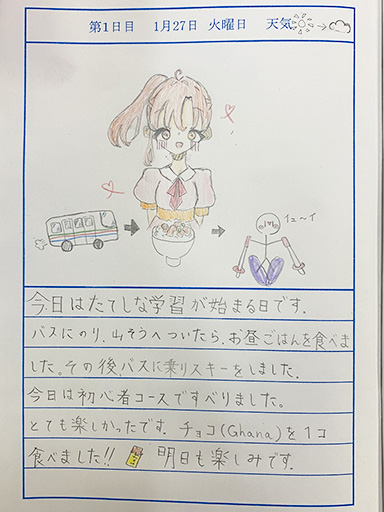 第1日目 1月27日 火曜日 天気
イェ〜イ
今日はたてしな学習が始まる日です。
バスにのり、山そうへついたら、お昼ごはんを食べま
した。その後、バスに乗りスキーをしました。
今日は初心者コースですべりました。
とても楽しかったです。チョコ(Ghana)を1コ
食べました!! 明日も楽しみです。